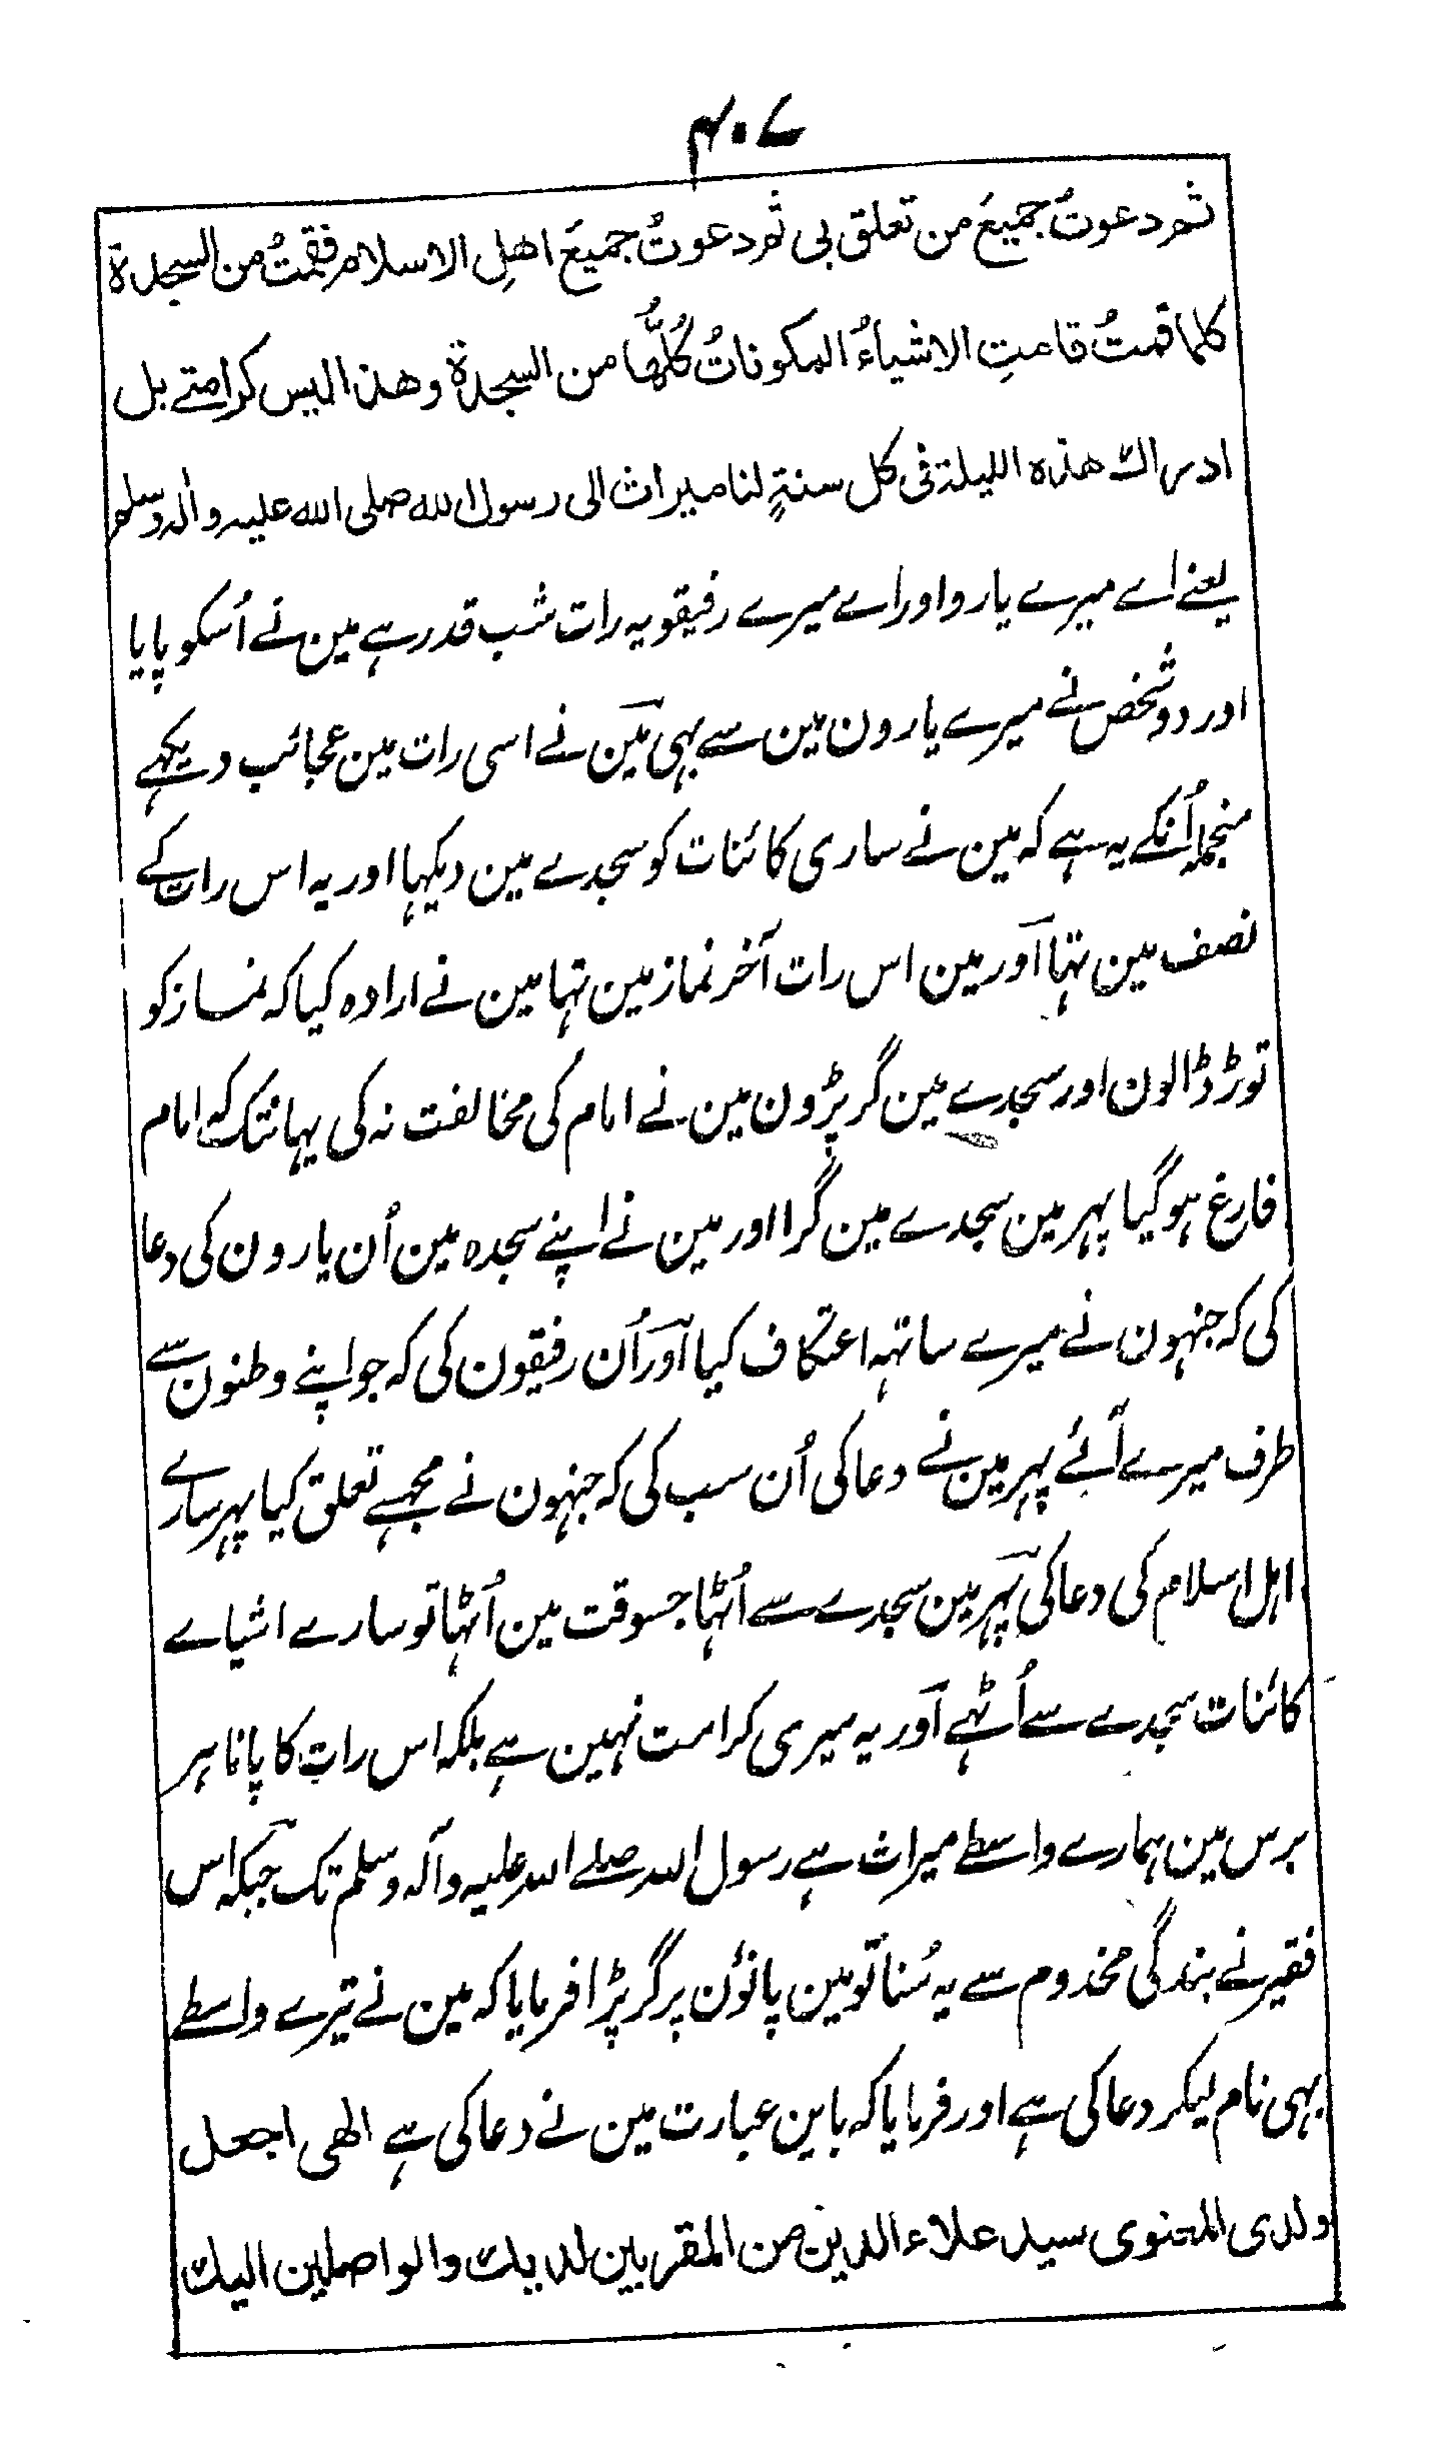 ۴۰۷
ثم دعوتُ جمیعَ من تعلق بی ثم دعوتُ جمیعَ اهلِ الاسلام فقمتُ من السجدة
کلما قمتُ قامتِ الاشیاءُ المکوناتُ کُلُّها من السجدة وهذا لیس کرامتے بل
ادراك هذه اللیلة فی کل سنةٍ لنا میراث الی رسول الله صلی الله علیه واله وسلم
یعنے اے میرے یارو اور اے میرے رفیقو یہ رات شب قدر ہے مین نے اُسکو پایا
اور دو شخص نے میرے یارون مین سے بہی مین نے اسی رات مین عجائب دیکہے
منجملہ اُنکے یہ ہے کہ مین نے ساری کائنات کو سجدے مین دیکہا اور یہ اس رات کے
نصف مین تہا اور مین اس رات آخر نماز مین تہا مین نے ارادہ کیا کہ نماز کو
توڑ ڈالون اور سجدے مین گر پڑون مین نے امام کی مخالفت نہ کی یہانتک کہ امام
فارغ ہوگیا پہر مین سجدے مین گرا اور مین نے اپنے سجدہ مین اُن یارون کی دعا
کی کہ جنہون نے میرے ساتہہ اعتکاف کیا اور اُن رفیقون کی کہ جو اپنے وطنون سے
طرف میرے آئے پہر مین نے دعا کی اُن سب کی کہ جنہون نے مجہسے تعلق کیا پہر سارے
اہل اسلام کی دعا کی پہر مین سجدے سے اُٹہا جسوقت مین اُٹہا تو سارے اشیاے
کائنات سجدے سے اُٹہے اور یہ میری کرامت نہین ہے بلکہ اس رات کا پانا ہر
برس مین ہمارے واسطے میراث ہے رسول اللہ صلے اللہ علیہ وآلہ وسلم تک جبکہ اس
فقیر نے بندگی مخدوم سے یہ سُنا تو مین پانوٴن پر گر پڑا فرمایا کہ مین نے تیرے واسطے
بہی نام لیکر دعا کی ہے اور فرمایا کہ باین عبارت مین نے دعا کی ہے الهی اجعل
ولدی المعنوی سید علاء الدین من المقربین لدیك والواصلین الیك